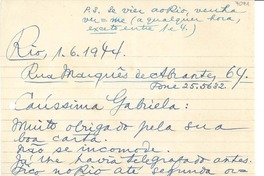 P.S. Se vier ao Rio, venha
ver-me (a qualquer hora,
exceto entre 1 e 4.)
Rio, 1.6.1944.
Rua Marquês de Abrantes, 64.
Fone 25.5632.
Caríssima Gabriela:
Muito obrigado pela sua
boa carta.
Não se incomode.
Já lhe havia telegrafado antes.
Fico no Rio até segunda or-